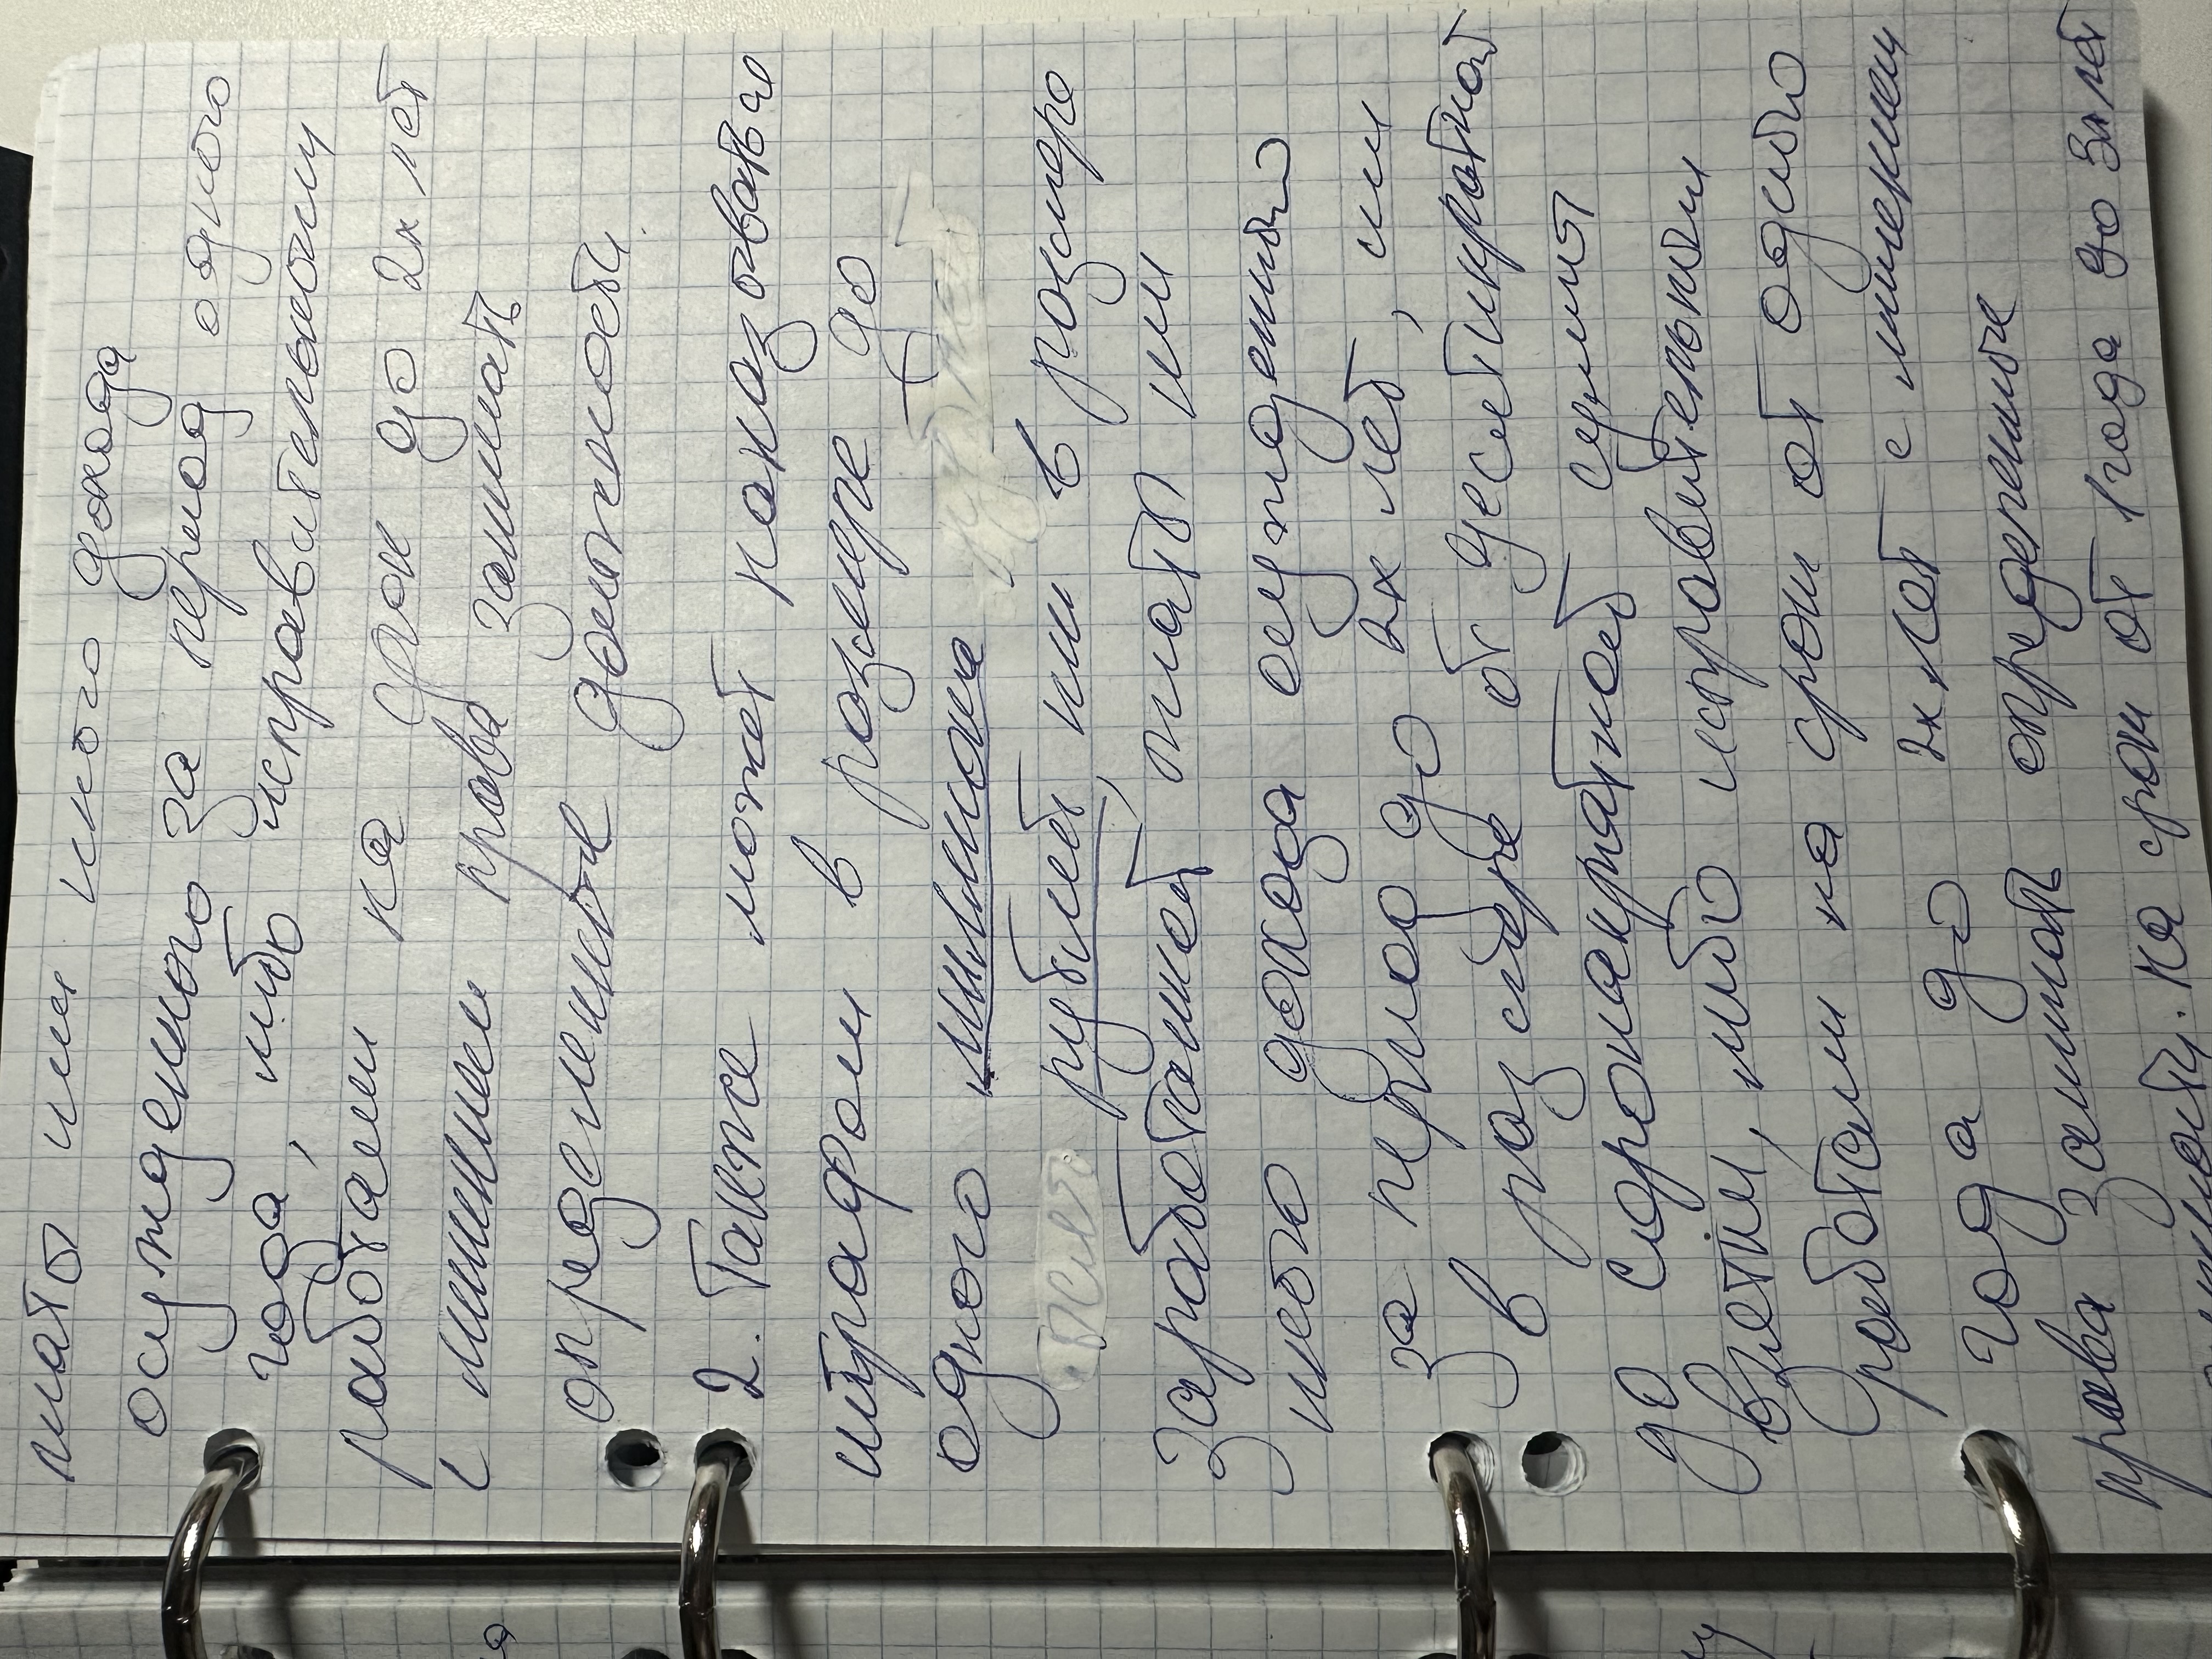 платы или иного дохода
осужденного за период одного
года, либо исправительными
работами на срок до 2х лет
с лишением права занимать
определенные должности.
2. Также может наказываться
штрафом в размере до
одного миллиона рублей
рублей, или в размере
заработанной платы или
иного дохода осужденного
за период до 2х лет, или
в размере от десятикратной
до сорокакратной суммы
взятки, либо исправительными
работами на срок от одного
года до 2х лет с лишением
права занимать определенные
должности. на срок от 1 года до 3х лет